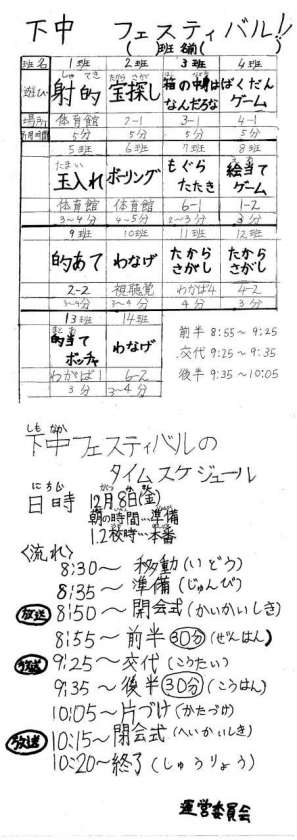 下中 フェスティバル!!
( )班 名前( )
班名 1班 2班 3班 4班
遊び 射的 宝探し 箱の中身はなんだろな ばくだんゲーム
場所 体育館 2-1 3-1 4-1
5分 5分 5分 5分
5班 6班 7班 8班
玉入れ ボーリング もぐらたたき 絵当てゲーム
体育館 体育館 6-1 1-2
3~4分 4~5分 2~3分 3分
9班 10班 11班 12班
的あて わなげ たからさがし たからさがし
2-2 視聴覚 わかば4 4-2
3~4分 3~4分 4分 3分
13班 14班
的当てボッチャ わなげ
わかば1 6-2
3分 3~4分
前半 8:55~9:25
交代 9:25~9:35
後半 9:35~10:05
下中フェスティバルの
タイムスケジュール
日時 12月8日(金)
朝の時間…準備
1.2校時…本番
<流れ>
8:30~移動(いどう)
8:35~準備(じゅんび)
放送 8:50~開会式(かいかいしき)
8:55~前半 30分(ぜんはん)
放送 9:25~交代(こうたい)
9:35~後半 30分(こうはん)
10:05~片づけ(かたづけ)
放送 10:15~閉会式(へいかいしき)
10:20~終了(しゅうりょう)
運営委員会